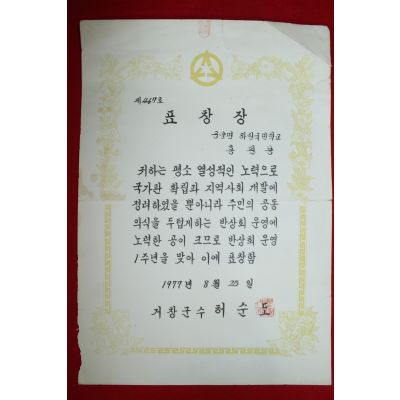 제467호
표창장
화산국민학교
귀하는 평소 열성적인 노력으로
국가관 확립과 지역사회 개발에
정려하였을 뿐아니라 주민의 공동
의식을 두텁게하는 반상회 운영에
노력한 공이 크므로 반상회 운영
1주년을 맞아 이에 표창함
1977년 8월 25일
거창군수 허순도